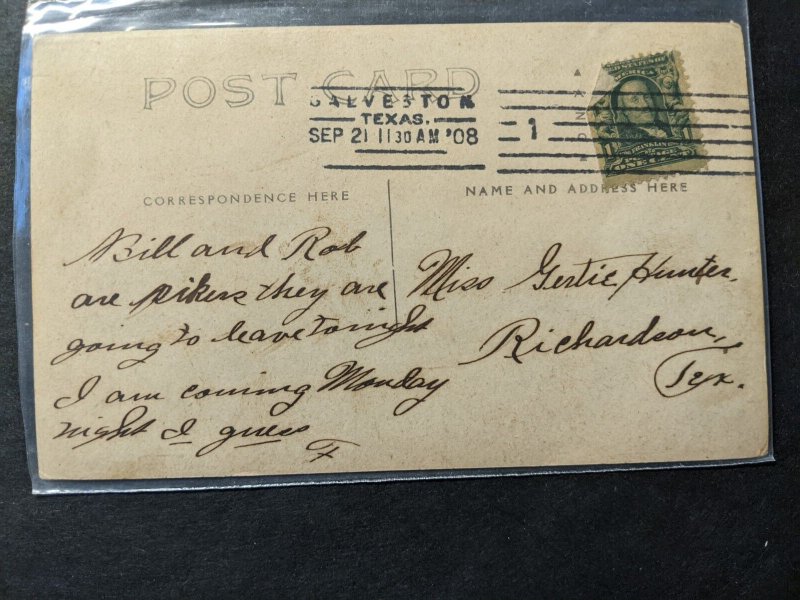 POST CARD
GALVESTON
TEXAS.
SEP 21 11 30 AM '08
1
FRANKLIN
ONE
CORRESPONDENCE HERE
NAME AND ADDRESS HERE
Bill and Rob
are pikers they are
going to leave tonight
I am coming Monday
night I guess
F
Miss Gertie Hunter,
Richardson,
Tex.